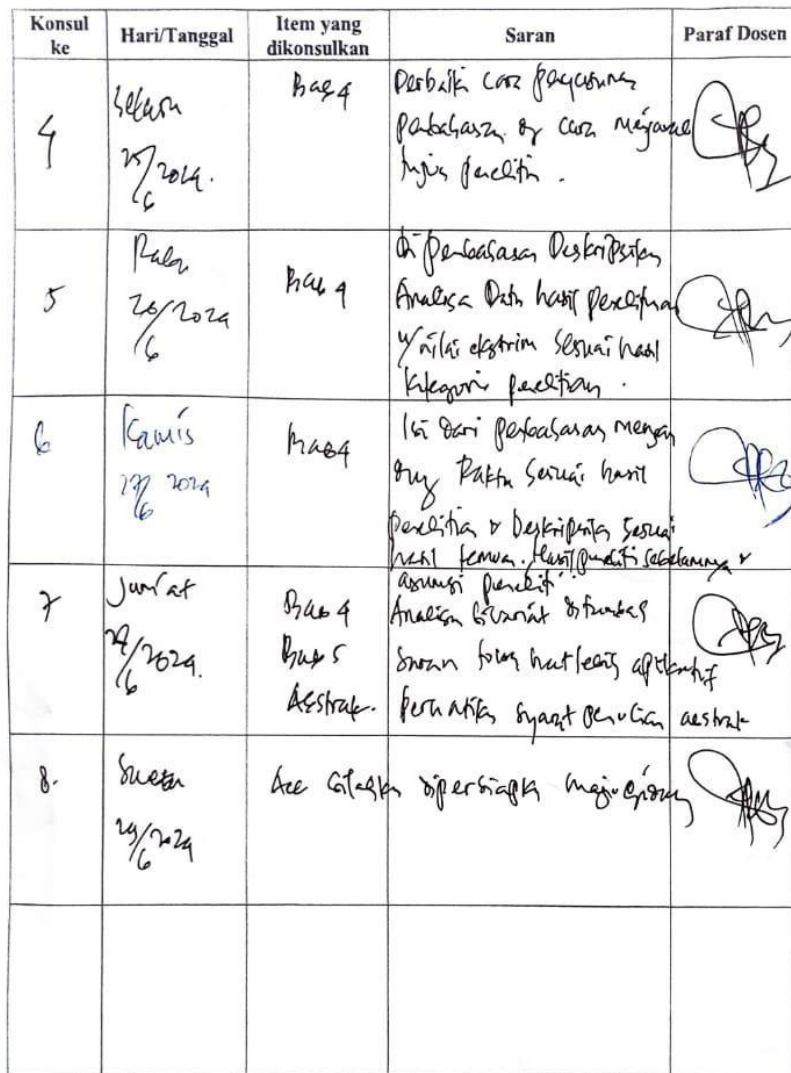 Konsul ke
Hari/Tanggal
Item yang dikonsulkan
Saran
Paraf Dosen
4
Selasa
25/6 2024.
Bab 4
Perbaiki cara penyusunan
pembahasan cara menjawab
tujuan peneliti.
5
Rabu
26/6 2024
Bab 4
di pembahasan Deskripsikan
Analisa Data hasil penelitian
nilai ekstrim sesuai hasil
kategori penelitian.
6
Kamis
27/6 2024
Bab 4
Isi dari pembahasan mengan
dung Fakta sesuai hasil
penelitian & Deskripsikan sesuai
hasil temuan. Hasil peneliti sebelumnya &
asumsi peneliti
7
Jum'at
/6 2024.
Bab 4
Bab 5
Abstrak.
Analisa Bivariat
Saran lebih aplikatif
perhatikan syarat penulisan abstrak
8.
Sabtu
29/6 2024
Acc silahkan dipersiapkan maju